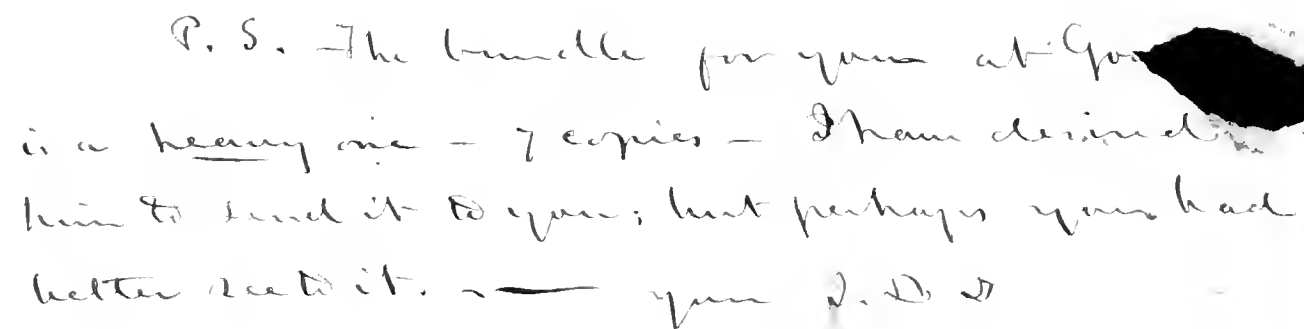 P. S. The bundle for you at
is a heavy one – 7 copies – I have desired
him to send it to you; but perhaps you had
better see to it. —